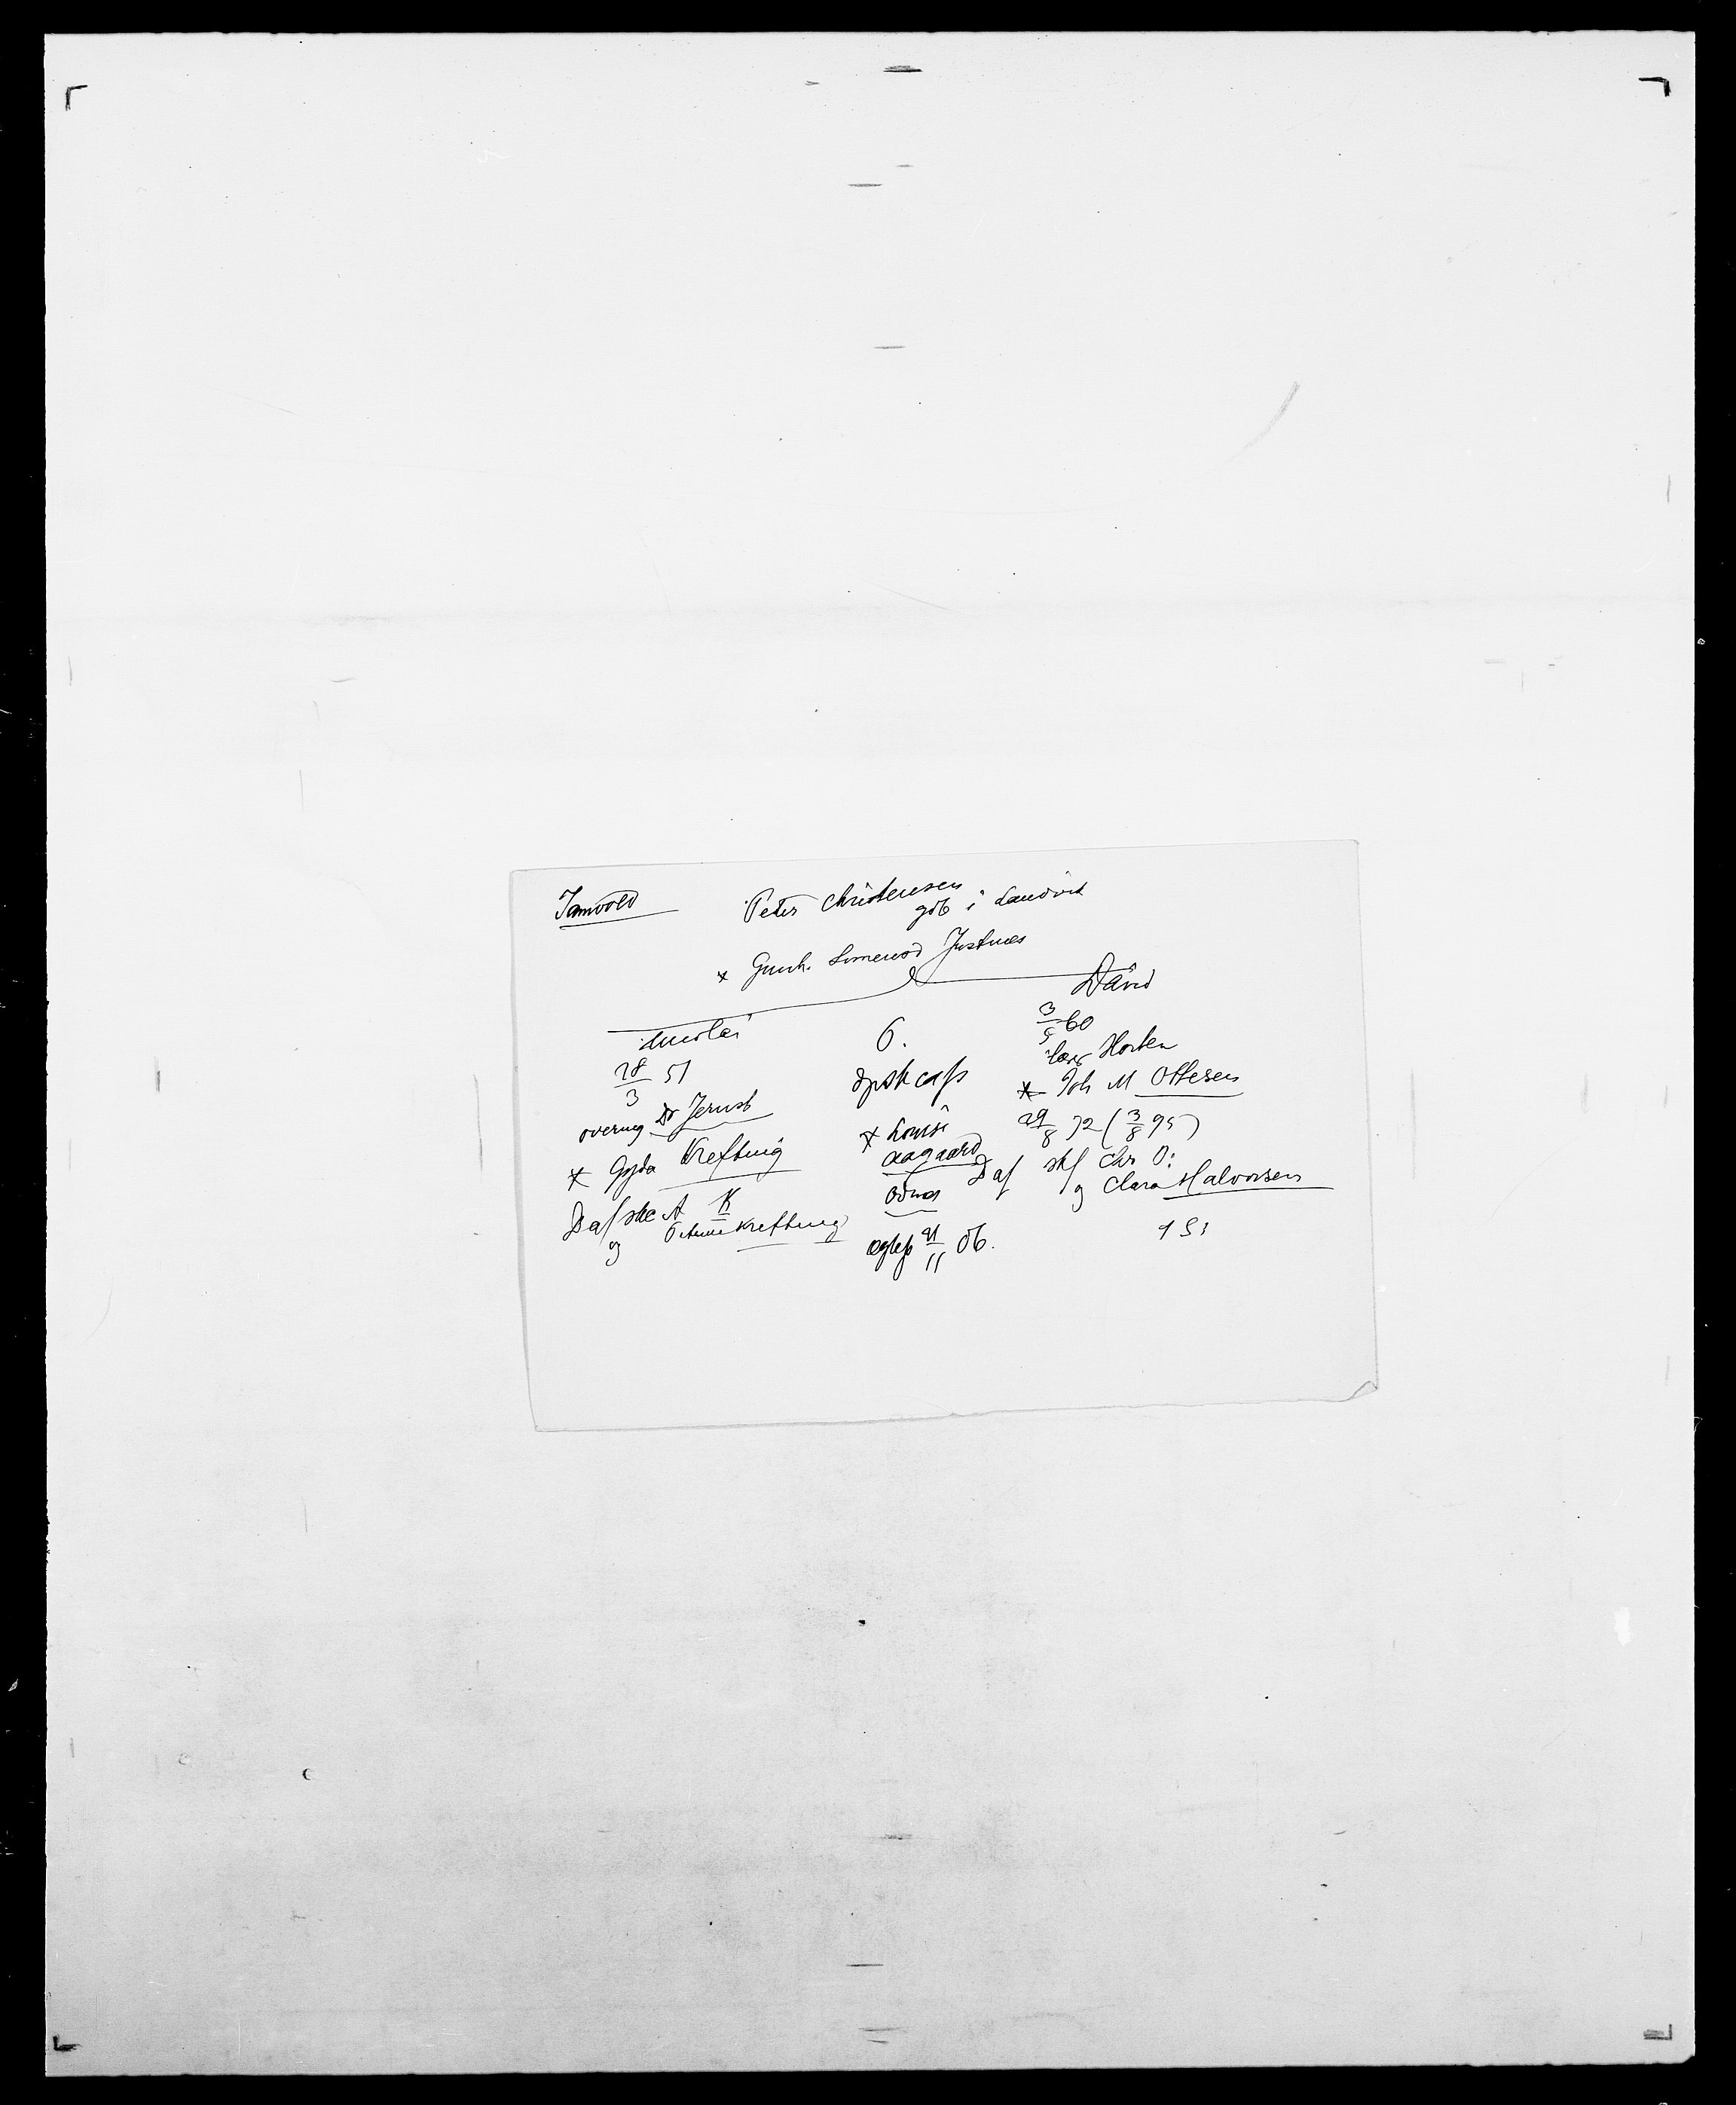 Tamvold
Peter Christensen
gdb i Landvik
* Gunh. Simensd Justnes
Nicolai
28/3 51
overing Dr Jernst
* Gyda Krefting
D af skc A K
og Petrine Krefting
6.
dpsk cafs
* Louise
Aagaard
Odnes
ogteps 21/11 06.
David
3/5 60
lær Horten
* Joh M Ottesen
29/8 72 (3/8 95)
D af skf Chr O:
og Clara Halvorsen
1 S: